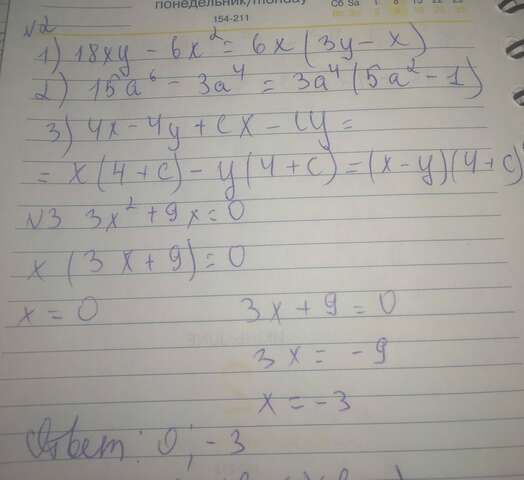 понедельник/monday
154-211
Сб Sa 1 8 15 22
№2
1) 18xy - 6x² = 6x (3y - x)
2) 15a⁶ - 3a⁴ = 3a⁴ (5a² - 1)
3) 4x - 4y + cx - cy =
= x(4+c) - y(4+c) = (x-y)(4+c)
№3 3x² + 9x = 0
x (3x + 9) = 0
x = 0 3x + 9 = 0
3x = -9
x = -3
Ответ: 0; -3